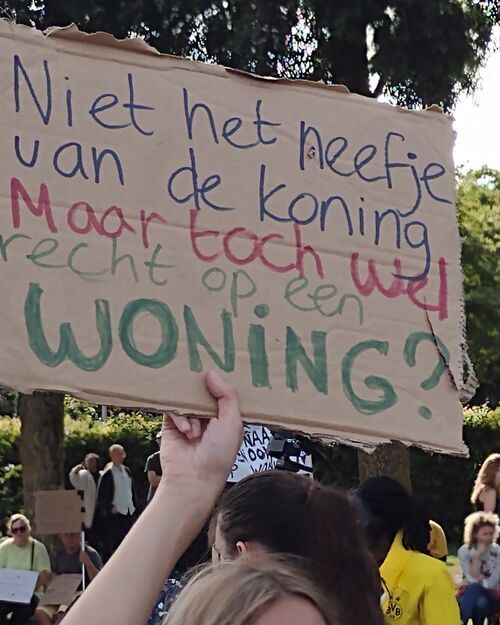 Niet het neefje
van de koning
Maar toch wel
recht op een
WONING?
BVB